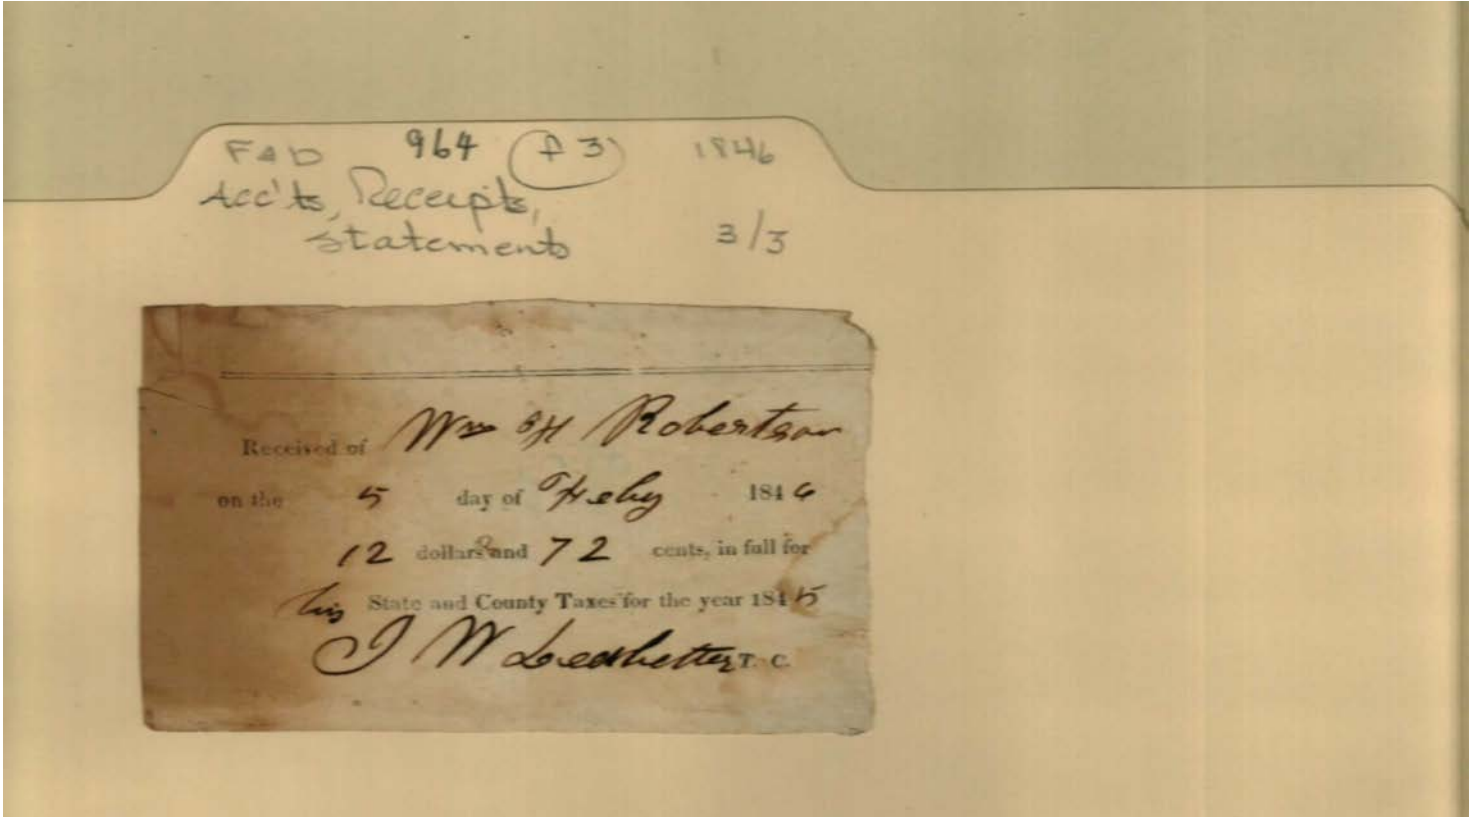 FAD 964 (f 3) 1846
Acc'ts, Receipts,
Statements 3/3
Received of Wm H Robertson
on the 5 day of Feby 1846
12 dollars and 72 cents, in full for
his State and County Taxes for the year 1845
J W Ledbetter T. C.